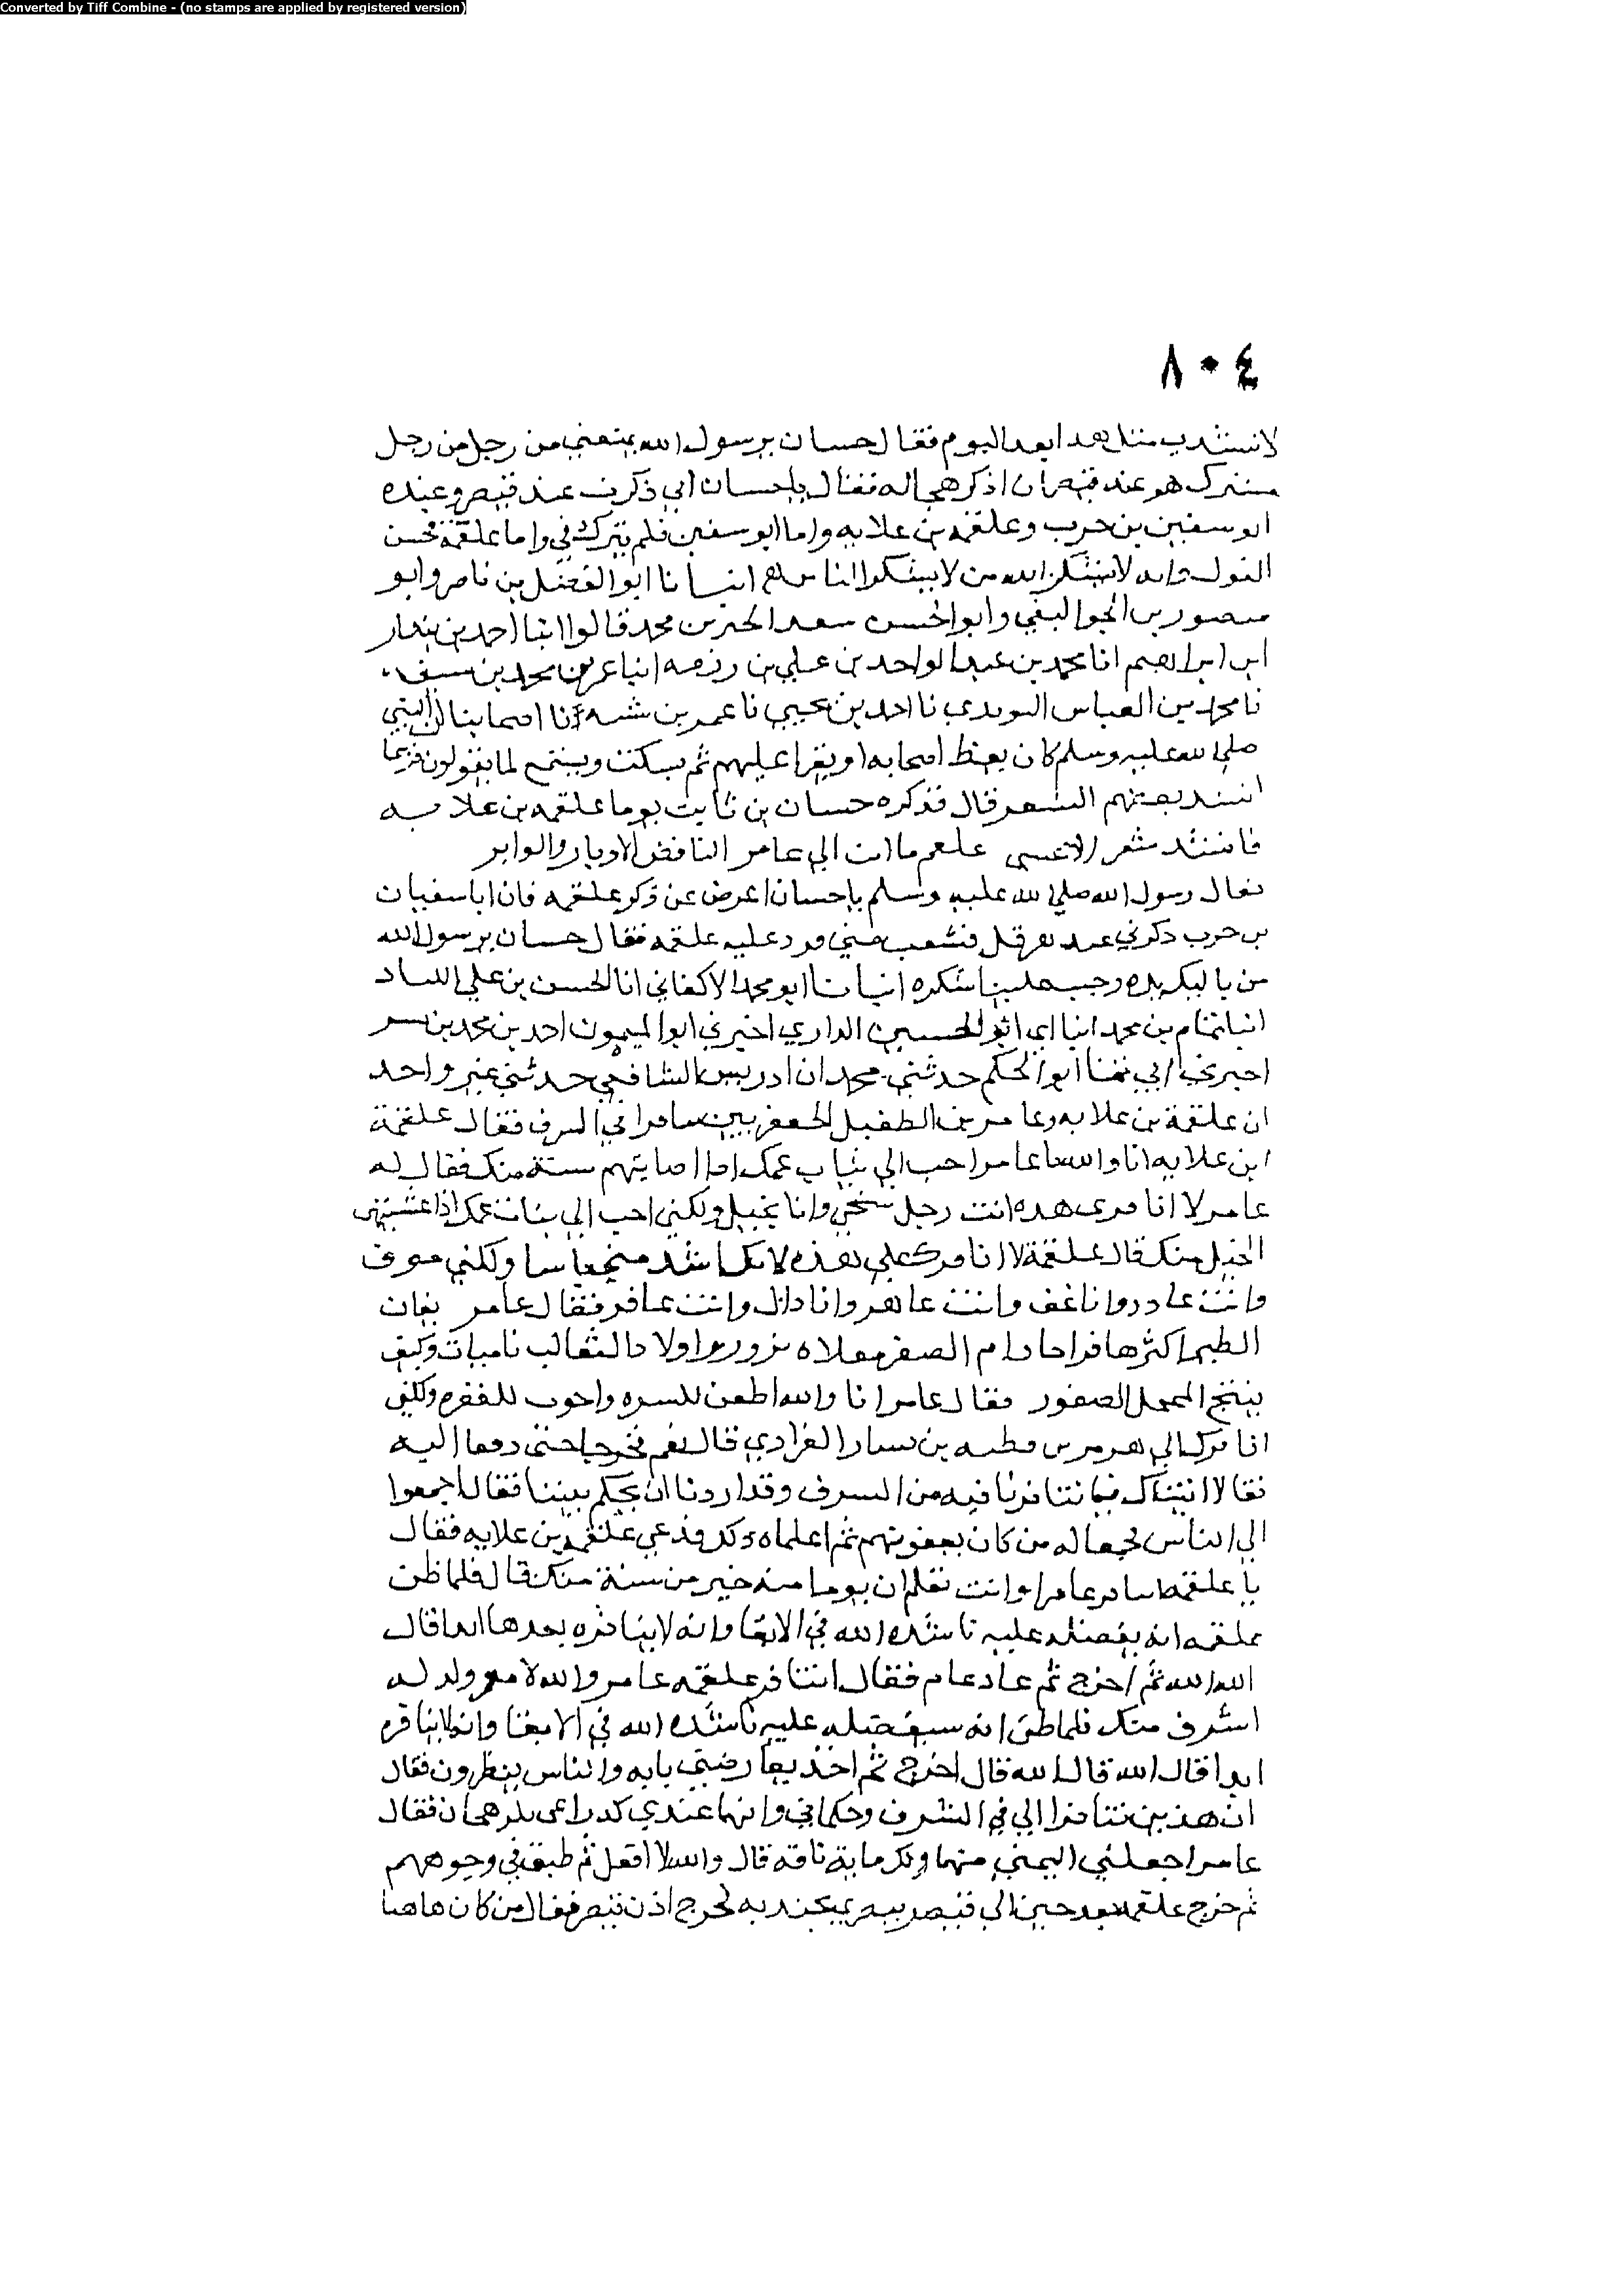 Converted by Tiff Combine - (no stamps are applied by registered version)
٨٠٤
لا تنشدني مثل هذا بعد اليوم فقال حسان يرسول الله يمنعني من رجل من رجل
مشرك هو عند قيصر ان اذكر هجا له فقال ياحسان اني ذكرت عند قيصر وعنده
ابو سفين بن حرب وعلقمه بن علاثه واما ابو سفين فلم يترك في واما علقمة فحسن
القول وانه لا يشكر الله من لا يشكر الناس انبانا ابو الفضل بن ناصر وابو
منصور بن الجواليقي وابو الحسن سعد الخير بن محمد قالوا انبا احمد بن بندار
ابن ابراهيم انا محمد بن عبد الواحد بن علي بن رزمه انبا عمر بن محمد بن سيف
نا محمد بن العباس اليزيدي نا احمد بن يحيى نا عمر بن شبه نا اصحابنا ان النبي
صلى الله عليه وسلم كان يعظ اصحابه او يقرا عليهم ثم يسكت ويستمع لما يقولون فربما
انشد بعضهم الشعر قال فذكره حسان بن ثابت يوما علقمه بن علاثه
فانشد شعر الاعشى علقم ما انت الى عامر الناقض الاوتار والواتر
فقال رسول الله صلى الله عليه وسلم ياحسان اعرض عن ذكر علقمه فان ابا سفيان
بن حرب ذكرني عند هرقل فشعب مني ورد عليه علقمه فقال حسان يرسول الله
من نالتك يده وجب علينا شكره انبانا ابو محمد الاكفاني انا الحسن بن علي اللباد
انبا تمام بن محمد انبا ابي ابو الحسين الرازي اخبرني ابو الميمون احمد بن محمد بن
اخبرني ابي ثنا ابو الحكم حدثني محمد ان ادريس الشافعي حدثني غير واحد
ان علقمة بن علاثه وعامر بن الطفيل الجعفريين تنافرا في الشرف فقال علقمة
ابن علاثه انا والله يا عامر احب الى ثياب عمك اذا اصابتهم سنة منك فقال له
عامر لا انافرك هذه انت رجل سخي وانا بخيل ولكني احب الى بنات عمك اذا غشيتهن
الخيل منك قال علقمة لا انافرك على هذه لانك اشد مني باسا ولكني موف
وانت غادر وانا عف وانت عاهر وانا والد وانت عاقر فقال عامر بغاث
الطير اكثرها فراخا وام الصقر مقلاه نزور واولاد الثعالب ناميات وكيف
ينتج المحمل الصقور فقال عامر انا والله اطعن للسره واجوب للقفره ولكني
انافرك الى هرم بن قطبه بن سيار الفزاري قال نعم فخرجا حتى دفعا اليه
فقالا اتيناك فيما تنافرنا فيه من الشرف وقد اردنا ان تحكم بيننا فقال اجمعوا
الي الناس فجمعا له من كان بعقوتهم ثم اعلماه ذلك فدعي علقمه بن علاثه فقال
يا علقمه تنافر عامرا وانت تعلم ان يوما منه خير من سنة منك قال فلما ظن
علقمه انه يفضله عليه ناشده الله في الابقا وانه لا ينافره بعدها ابدا قال
الله الله ثم اخرج ثم عاد عام فقال اتنافر علقمه عامر والله لاعور ولد له
اشرف منك فلما ظن انه سيفضله عليه ناشده الله في الابقا وانه لا ينافره
ابدا قال الله قال الله قال اخرج ثم اخذ بعارضتي بابه والناس ينظرون فقال
ان هذين تنافرا الي في الشرف وحكماني وانهما عندي كذراعي بكر هجان فقال
عامر اجعلني اليمنى منهما ولك ماية ناقه قال والله لا افعل ثم طبق في وجوههم
ثم خرج علقمه بعد حين الى قيصر ببصرى يجتديه لخرج اذن قيصر فقال من كان هاهنا